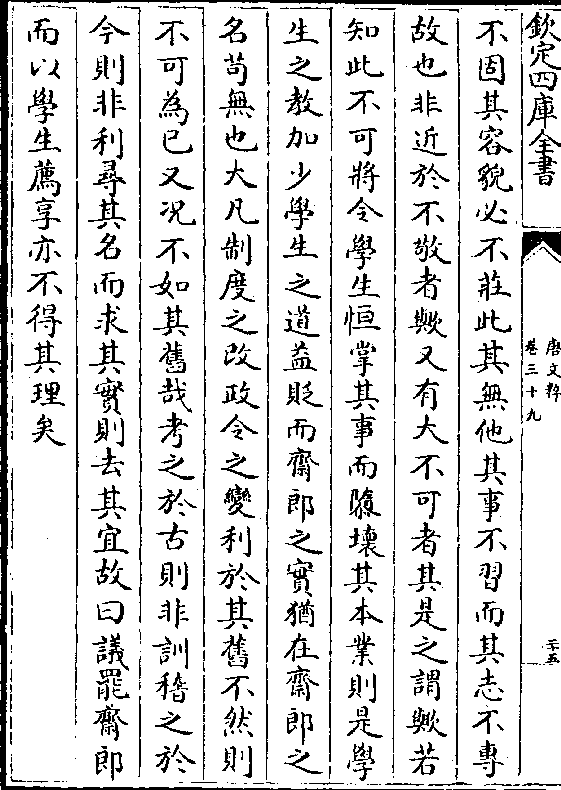 欽定四庫全書
唐文粹
卷三十九
二十五
不固其容貌必不莊此其無他其事不習而其志不專
故也非近於不敬者歟又有大不可者其是之謂歟若
知此不可將令學生恒掌其事而隳壞其本業則是學
生之教加少學生之道益貶而齋郎之實猶在齋郎之
名苟無也大凡制度之改政令之變利於其舊不然則
不可為已又况不如其舊哉考之於古則非訓稽之於
今則非利尋其名而求其實則去其宜故曰議罷齋郎
而以學生薦享亦不得其理矣